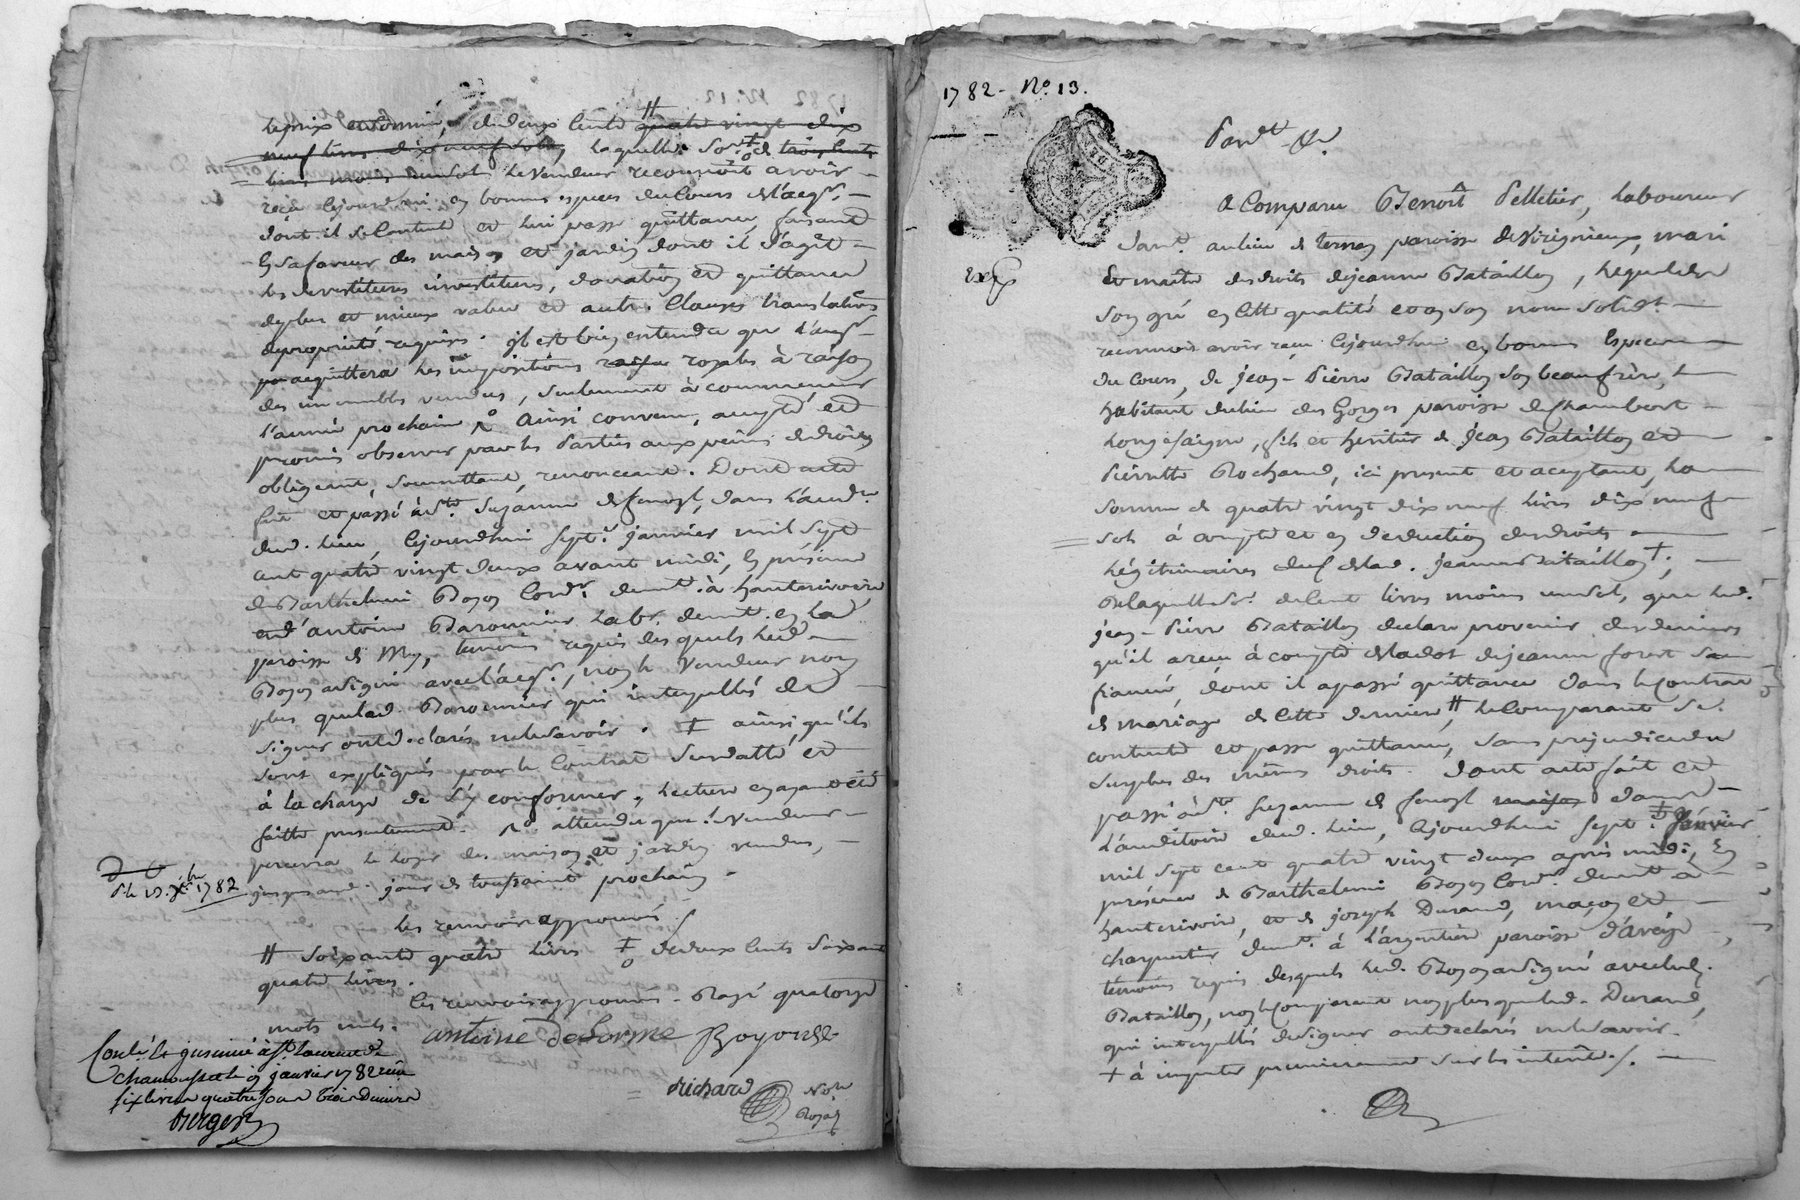 le prix et somme, de deux cents quatre vingt dix
neuf livres dix neuf sols, laquelle so.e de trois cents
livres moins un sol le vendeur reconnoit avoir
reçu cejourdhui en bonnes especes du cours de l'acqr.
dont il se contente et lui passe quittance, faisant
en sa faveur des maison et jardin dont il s'agit
les devestitures investitures, donation et quittance
de plus et mieux value et autres clauses translatives
de propriété requises. il est bien entendu que l'acqr.
acquittera les impositions royales à raison
des immeubles vendus, seulement à commencer
l'année prochaine ainsi convenu, accepté et
promis observer par les parties aux peines de droit
obligeant, soumettant, renonceant. Dont acte
fait et passé à Ste. Suzanne de fenoyl, dans l'aud.re
dud. lieu, cejourdhui sept.e janvier mil sept
cent quatre vingt deux avant midi, en présence
de Barthelemi Boyon Cord.r demt. à hauterivoire
et d'antoine Baronnier lab.r demt. en la
paroisse de Mey, temoins requis desquels led.
Boyon a signé avec l'acqr., non le vendeur non
plus que led. Baronnier qui interpellés de
signer ont declarés ne le savoir. ‡ ainsi qu'ils
sont expliqués par le contrat susdatté et
à la charge de s'y conformer, lecture en ayant été
faitte presentement. attendu que le vendeur
percevra le loyer des maison et jardin vendus,
jusques aud. jour de toussaint prochain.
D C
P. le 15. Xbre 1782
les renvois approuvés.
# soixante quatre livres ‡ de deux cents soixante
quatre livres.
les renvois approuvés. Rayé quatorze
mots nuls.
antoine Delorme Boyon
Conlé. et insinué à St. Laurent de
chamousset le 9 janvier 1782 reçu
six livres quatre sous trois deniers
Berger
Richard Not.re
Royal
1782. No. 13.
Pardt. &r.
Exp
A Comparu Benoît Pelletier, laboureur
demt. au lieu de ternay paroisse de Virigneux, mari
et maitre des droits de jeanne Bataillon, lequel de
son gré en cette qualité et en son nom solidt.
reconnoit avoir reçu cejourdhui en bonnes especes
du cours, de jean-Pierre Bataillon son beaufrère,
habitant du lieu des Gorges paroisse de Chambost
Longesaigne, fils et heritier de jean Bataillon et
Pierrette Rochand, ici present et acceptant, la
somme de quatre vingt dix neuf livres dix neuf
sols à compte et en deduction des droits
légitimaires de lad. jeanne Bataillon †;
De laquelle so.e de cent livres moins un sol, que led.
jean-Pierre Bataillon declare provenir des deniers
qu'il a reçu à compte de la dot de jeanne forest sa
fiancée, dont il a passé quittance dans le contrat
de mariage de cette derniere, # le comparant se
contente et passe quittance, sans prejudice du
surplus des mêmes droits. Dont acte fait et
passé à Ste. Suzanne de fenoyl maison dans
l'auditoire dud. lieu, cejourdhui sept.e janvier
mil sept cent quatre vingt deux après midi, en
présence de Barthelemi Boyon Cord.r demt. à
hauterivoire, et de joseph Durand, maçon et
charpentier demt. à l'argentière paroisse d'aveize
témoins requis desquels led. Boyon a signé avec led.
Bataillon, non le comparant non plus que led. Durand,
qui interpellés de signer ont declarés ne le savoir.
† à imputer premierement sur les interêts.